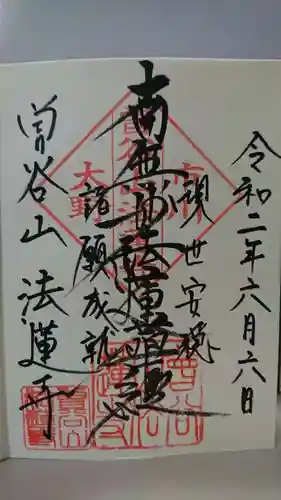 令和二年六月六日
現世安穏
南無妙法蓮華経
諸願成就
曽谷山 法蓮寺